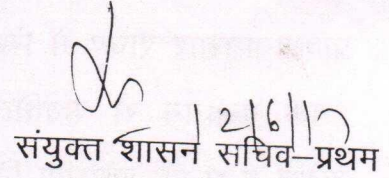 2/6/17
संयुक्त शासन सचिव–प्रथम